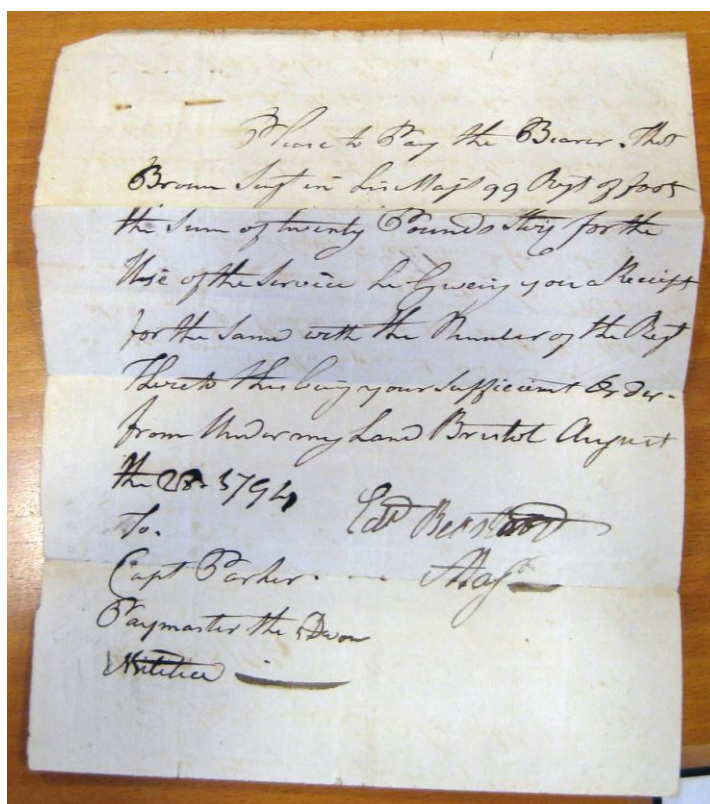 Please to Pay the Bearer. Thos
Brown Serjt in his Majts 99 Regt of foot
the Sum of twenty Pounds Sterg for the
Use of the Service he Giveing you a Receipt
for the Same with the Number of the Regt
thereto this being your Sufficient Order.
from Under my hand Bristol August
the 28. 1794
Edd
To.
Capt Parker.
Majr
Paymaster the Devon